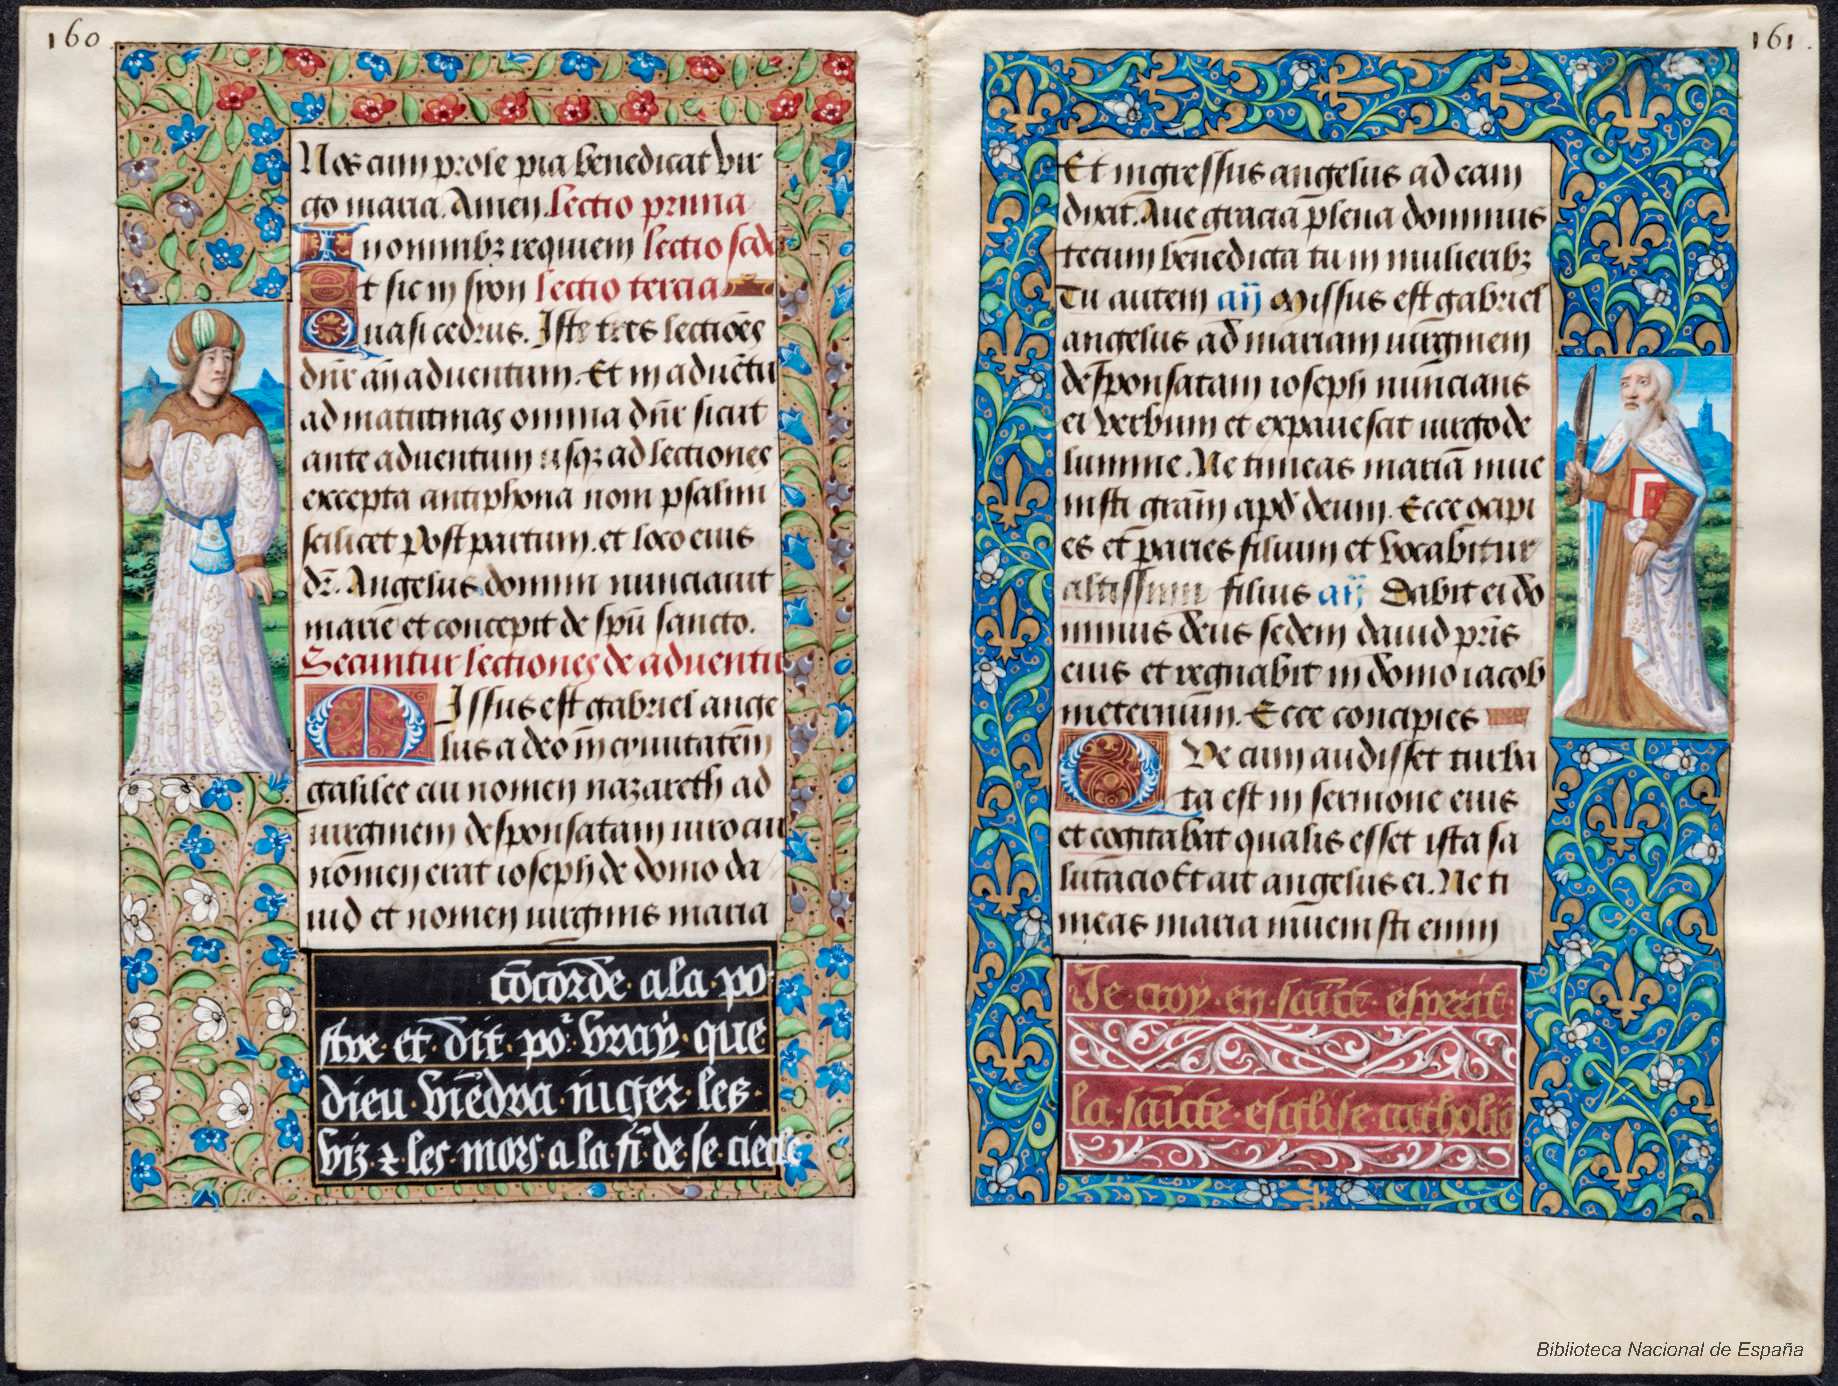 160
Nos cum prole pia benedicat vir
go maria. Amen. Lectio prima
In omnibꝫ requiem lectio scd̄a
Et sic in syon lectio tercia
Quasi cedrus. Iste tres lectiōes
dn̄r an̄ aduentum. Et in aduētu
ad matutinas omnia dn̄r sicut
ante aduentum usqꝫ ad lectiones
excepta antiphona nom psalmi
scilicet post partum. et loco eius
dr̄. Angelus domini nunciauit
marie et concepit de spū sancto.
Secuntur lectiones de aduentu
Missus est gabriel ange
lus a deo in ciuitatem
galilee cui nomen nazareth ad
uirginem desponsatam uiro cui
nomen erat ioseph de domo da
uid et nomen uirginis maria
cōcorde · a la · po
stre · et · dit · por · vray · que
dieu · viēdra · iuger · les ·
viz · ⁊ · les · mors · a la · fi · de · se · ciecle
161.
Et ingressus angelus ad eam
dixit. Aue gracia plena dominus
tecum benedicta tu in mulieribꝫ
Tu autem aīj Missus est gabriel
angelus ad mariam uirginem
desponsatam ioseph nuncians
ei verbum et expauescit uirgo de
lumine. Ne timeas mariā inue
nisti grām apd̄ deum. Ecce cōcipi
es et paries filium et vocabitur
altissimi filius aīj Dabit ei do
minus deus sedem dauid pr̄is
eius et regnabit in domo iacob
in eternum. Ecce concipies
Que cum audisset turba
ta est in sermone eius
et cogitabat qualis esset ista sa
lutacio Et ait angelus ei. Ne ti
meas maria inuenisti enim
Je · croy · en · saīct · esperit ·
la · saīcte · esglise · catholiq̄
Biblioteca Nacional de España